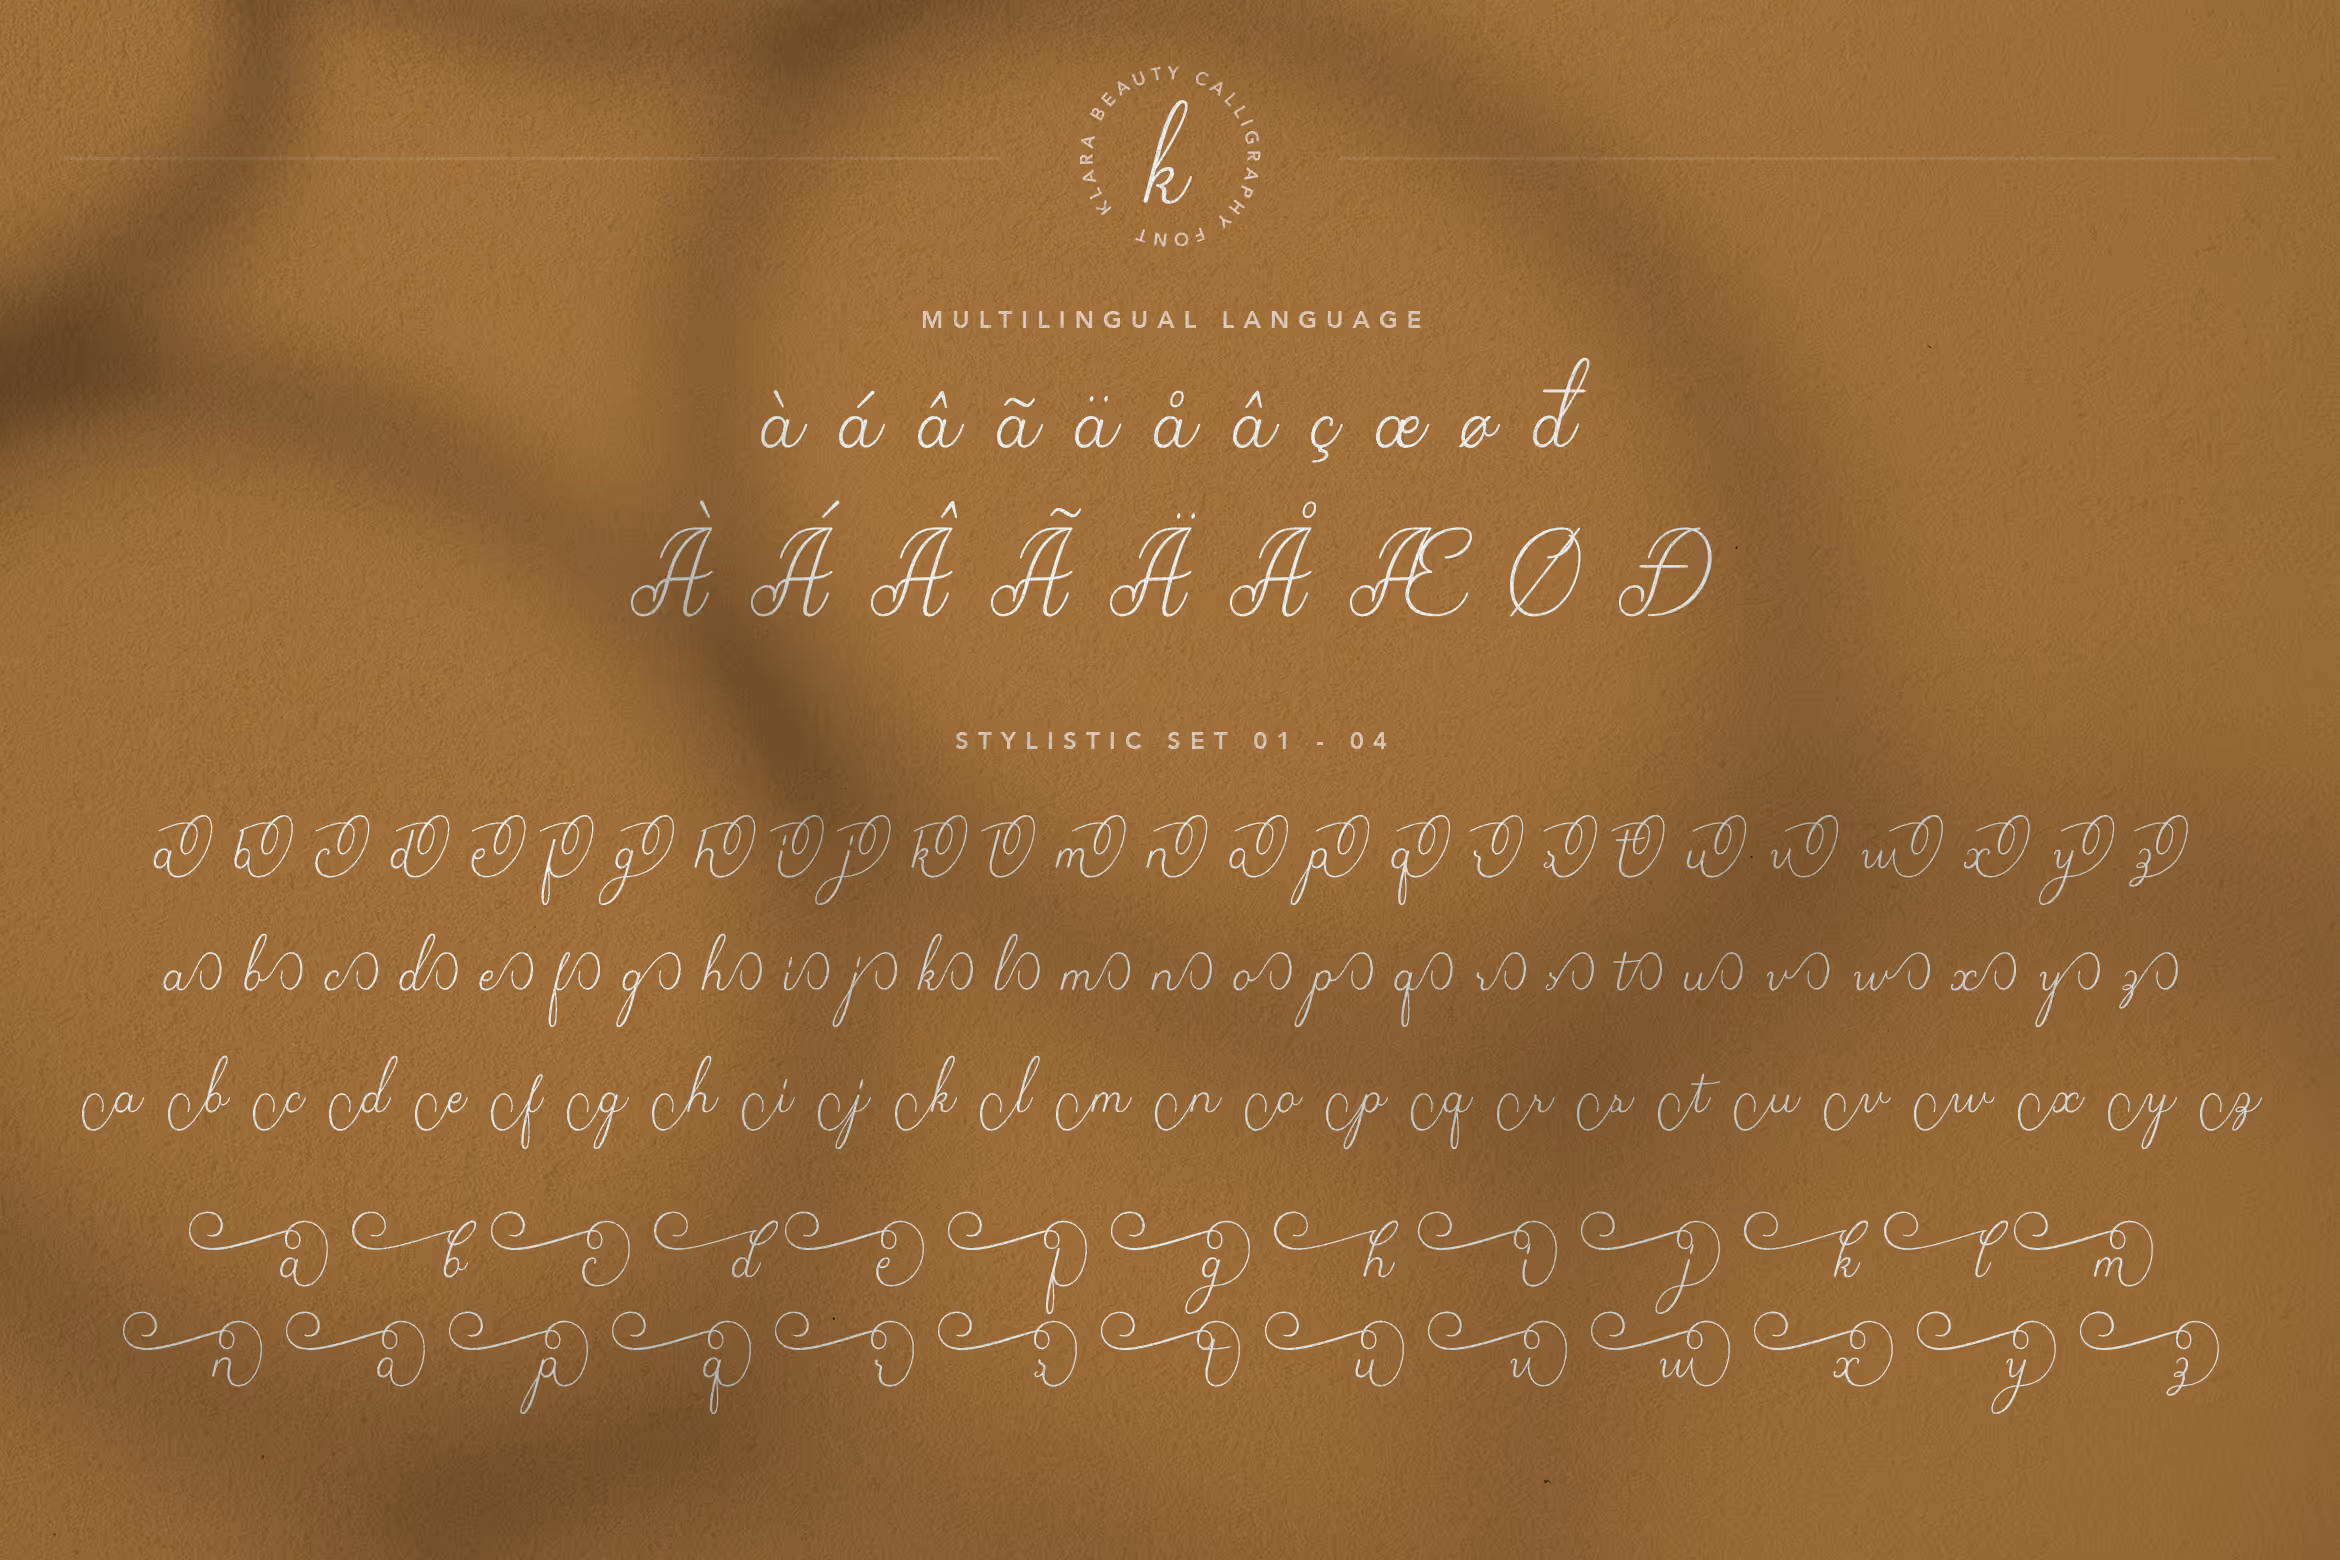 KLARA BEAUTY CALLIGRAPHY FONT
k
MULTILINGUAL LANGUAGE
à á â ã ä å â ç æ ø đ
À Á Â Ã Ä Å Æ Ø Đ
STYLISTIC SET 01 - 04
a b c d e f g h i j k l m n o p q r s t u v w x y z
a b c d e f g h i j k l m n o p q r s t u v w x y z
a b c d e f g h i j k l m n o p q r s t u v w x y z
a b c d e f g h i j k l m
n o p q r s t u v w x y z